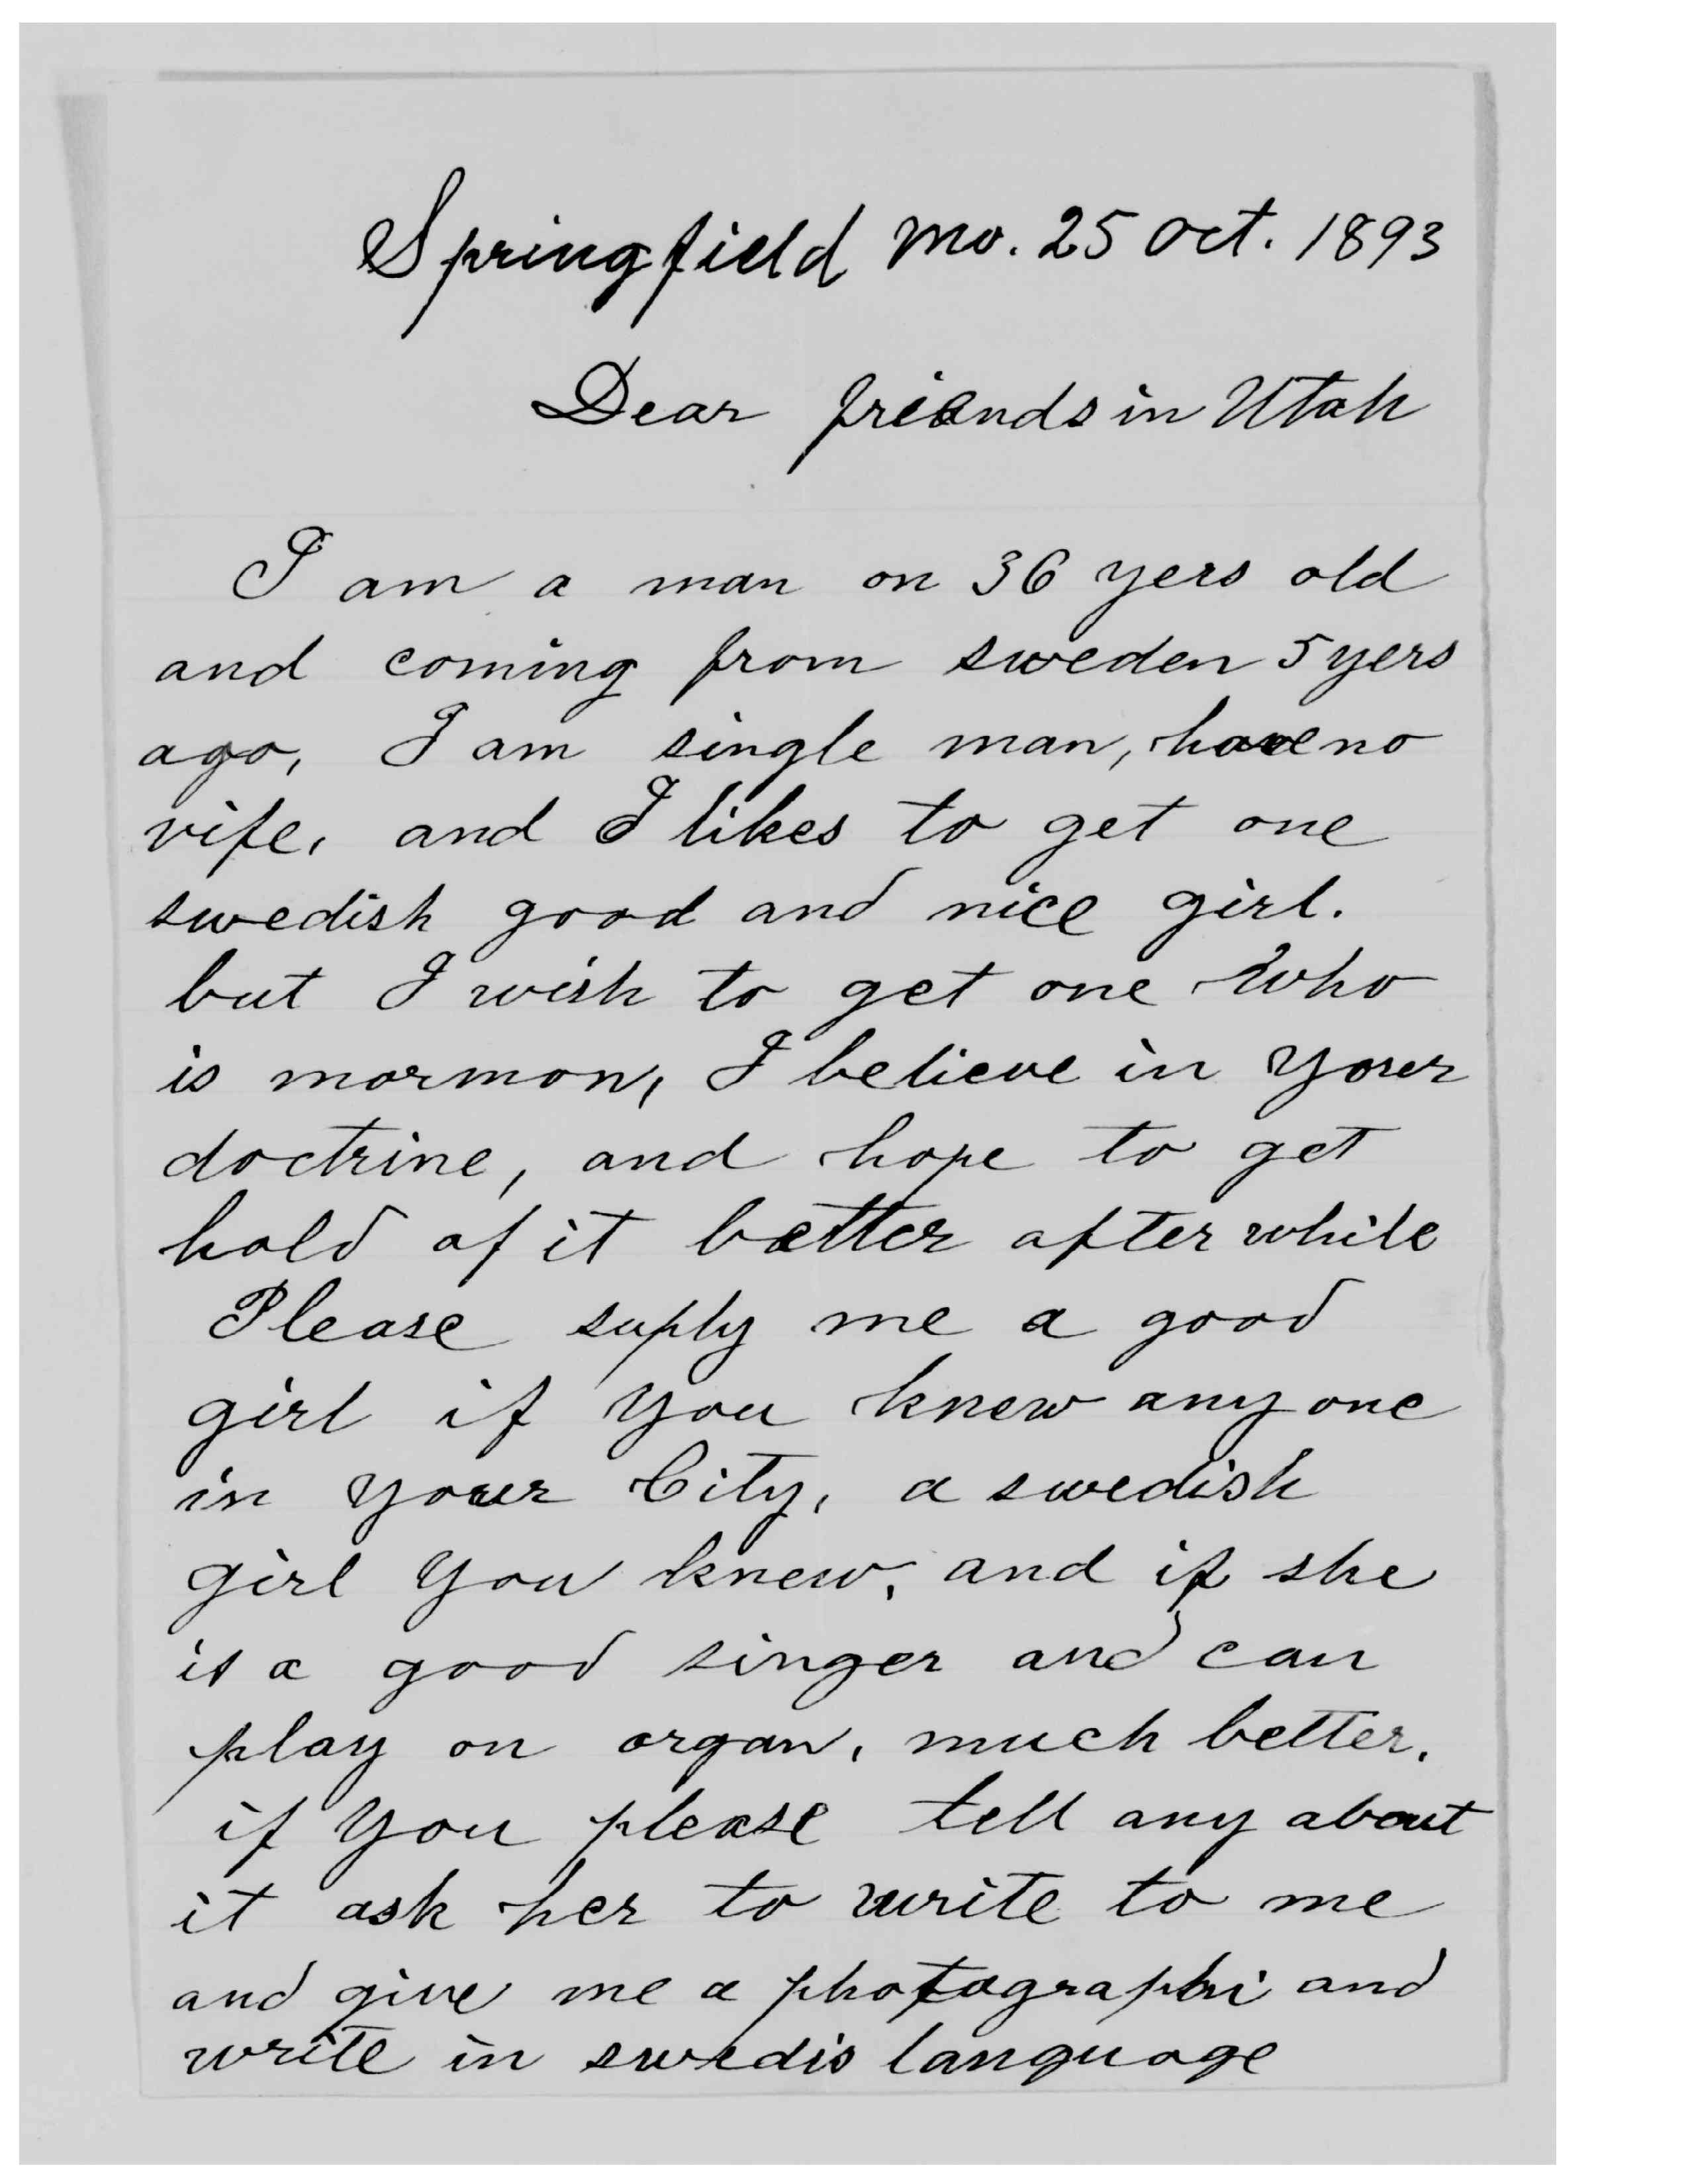 Springfield Mo. 25 Oct. 1893
Dear friends in Utah
I am a man on 36 yers old
and coming from sweden 5 yers
ago, I am single man, have no
vife, and I likes to get one
swedish good and nice girl.
but I wish to get one who
is mormon, I believe in your
doctrine, and hope to get
hold of it better after while
Please suply me a good
girl if you knew any one
in your City, a swedish
girl you knew, and if she
is a good singer and can
play on organ, much better.
if you please tell any about
it ask her to write to me
and give me a photographi and
write in swedis language